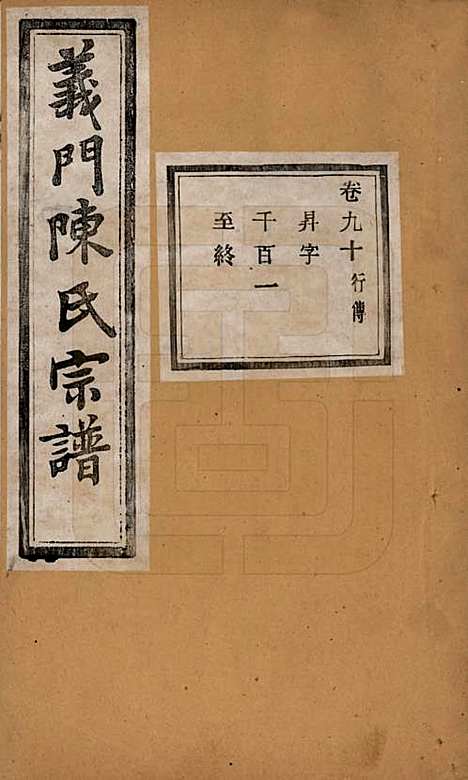 義門陳氏宗譜
卷九十行傳
昇字
千百一
至終